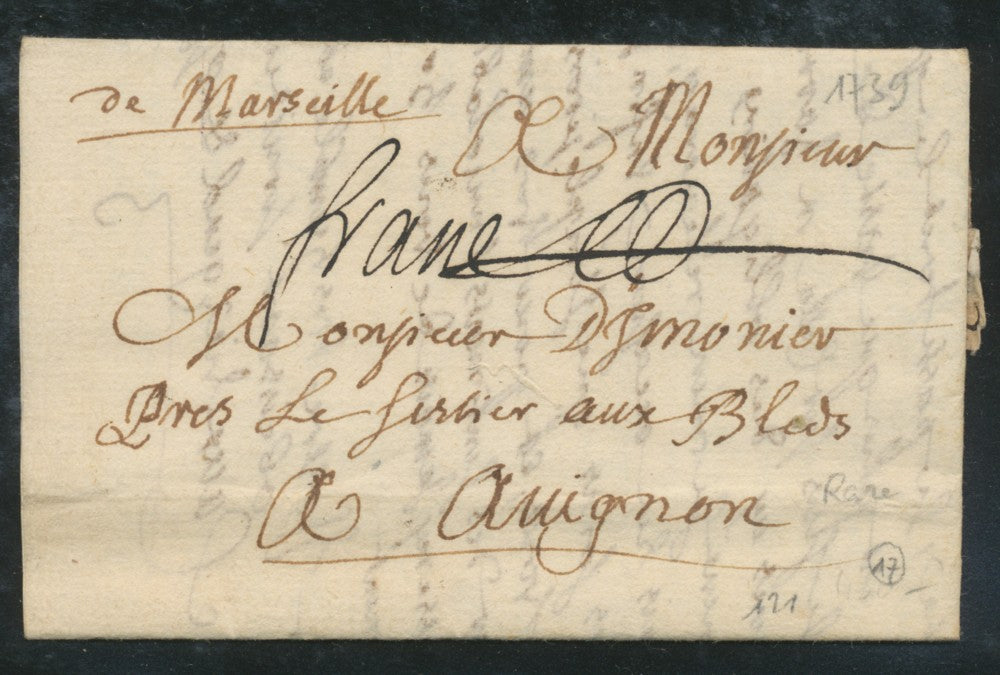 de Marseille
1739
A Monsieur
franco
Monsieur Dhmonier
Pres Le sestier aux Bleds
Rare
A Avignon
17
121